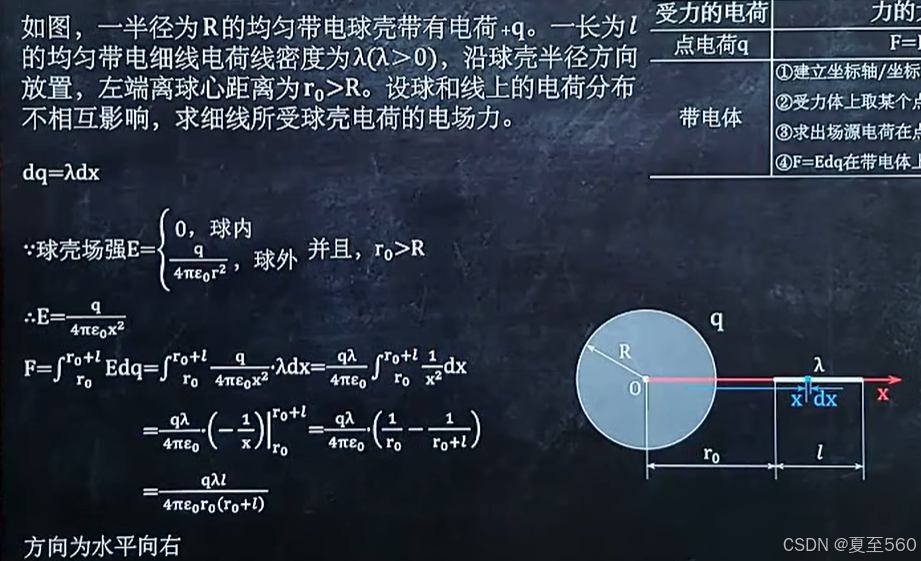 如图，一半径为R的均匀带电球壳带有电荷+q。一长为l
的均匀带电细线电荷线密度为λ(λ＞0)，沿球壳半径方向
放置，左端离球心距离为r₀>R。设球和线上的电荷分布
不相互影响，求细线所受球壳电荷的电场力。
受力的电荷 力的
点电荷q F=
带电体 ①建立坐标轴/坐标
②受力体上取某个点
③求出场源电荷在点
④F=Edq在带电体上
dq=λdx
∵球壳场强E={0，球内
q/(4πε₀r²)，球外 并且，r₀>R
∴E=q/(4πε₀x²)
F=∫_{r₀}^{r₀+l} Edq=∫_{r₀}^{r₀+l} q/(4πε₀x²)·λdx=qλ/(4πε₀) ∫_{r₀}^{r₀+l} 1/x² dx
=qλ/(4πε₀)·(−1/x)|_{r₀}^{r₀+l}=qλ/(4πε₀)·(1/r₀−1/(r₀+l))
=qλl/(4πε₀r₀(r₀+l))
方向为水平向右
q
R
λ
O
x dx
x
r₀ l
CSDN @夏至560